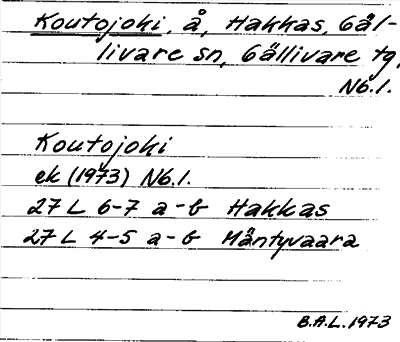 Koutojoki, å, Hakkas, Gäl-
livare sn, Gällivare tg,
Nb.l.
Koutojoki
ek (1973) Nb.l.
27 L 6-7 a-b Hakkas
27 L 4-5 a-b Mäntyvaara
B.A.L. 1973